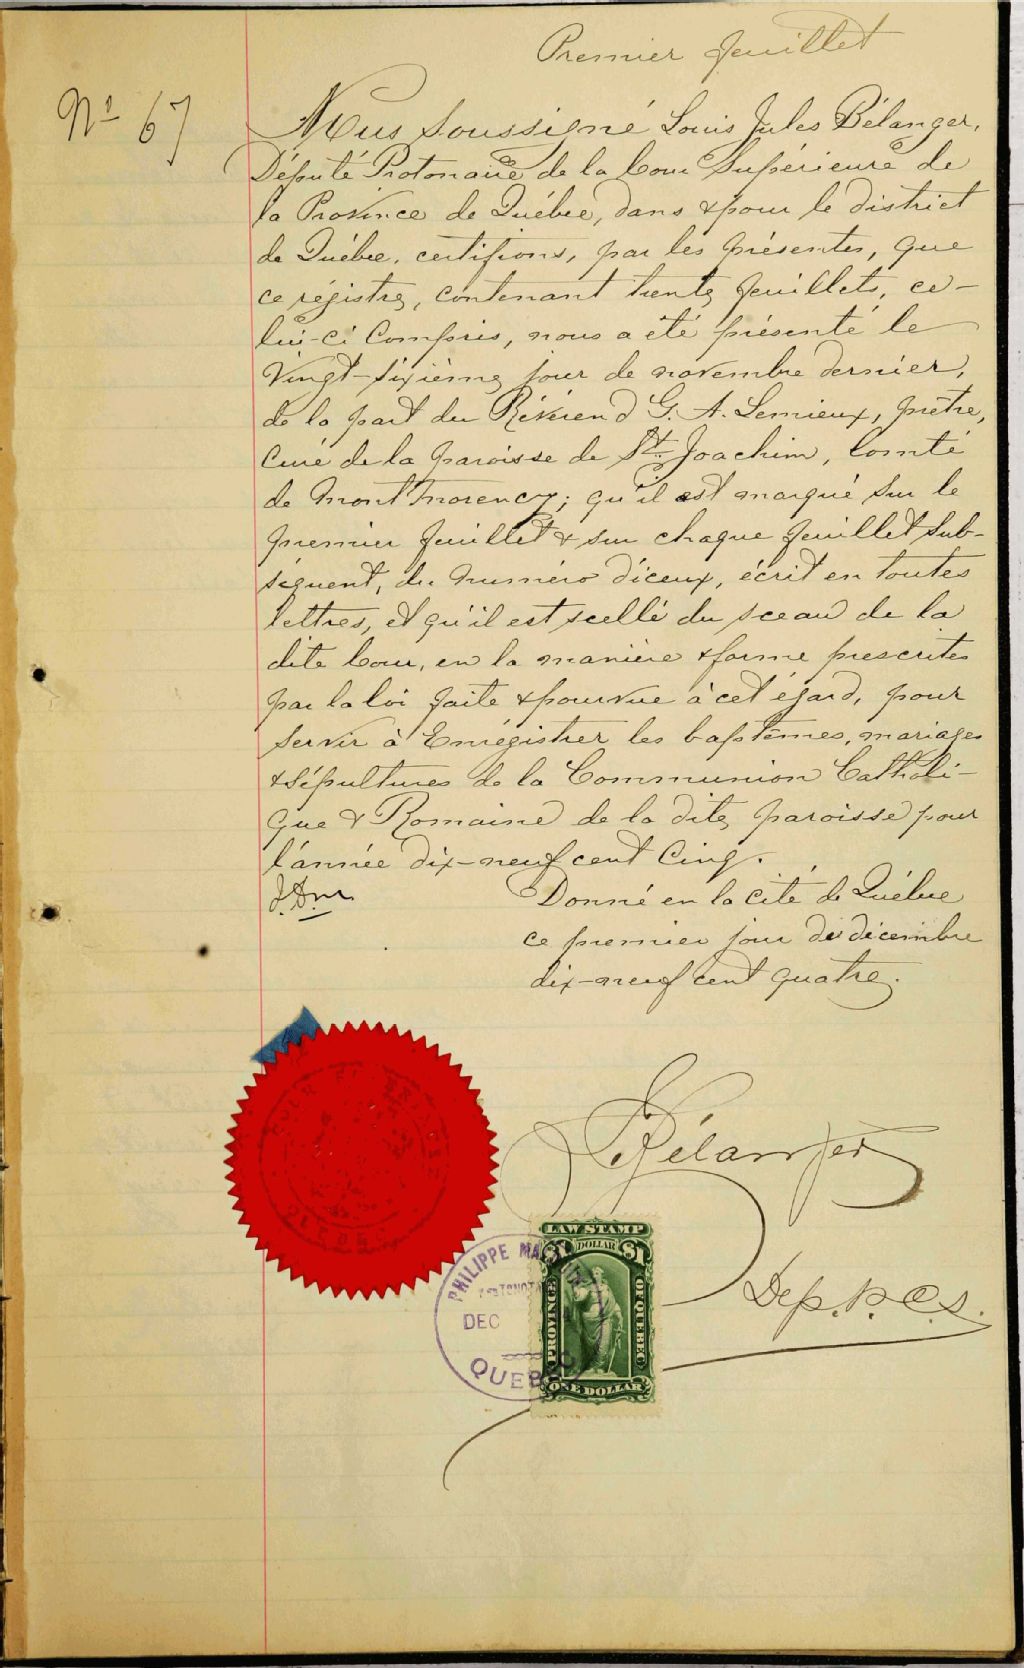 Premier feuillet
No 67
Nous Soussigné Louis Jules Bélanger,
Député Protonaire de la Cour Supérieure de
la Province de Québec, dans & pour le district
de Québec, certifions, par les présentes, que
ce régistre, contenant trente feuillets, ce-
lui-ci Compris, nous a été présenté le
Vingt-sixième jour de novembre dernier,
de la part du Révérend G. A. Lemieux, prêtre,
Curé de la paroisse de St. Joachim, Comté
de Montmorency; qu'il est marqué sur le
premier feuillet & sur chaque feuillet sub-
séquent, du numéro d'iceux, écrit en toutes
lettres, et qu'il est scellé du sceau de la
dite Cour, en la manière & forme prescrites
par la loi faite & pourvue à cet égard, pour
servir à Enrégistrer les baptêmes, mariages
& sépultures de la Communion Catholi-
que & Romaine de la dite paroisse pour
l'année dix-neuf cent Cinq.
Donné en la cité de Québec
ce premier jour de décembre
dix-neuf cent quatre.
COUR SUPERIEURE
QUEBEC
Bélanger
Dep. P. C. S.
LAW STAMP
$1 DOLLAR $1
PROVINCE OF QUEBEC
ONE DOLLAR
PHILIPPE
DEC
QUEBEC